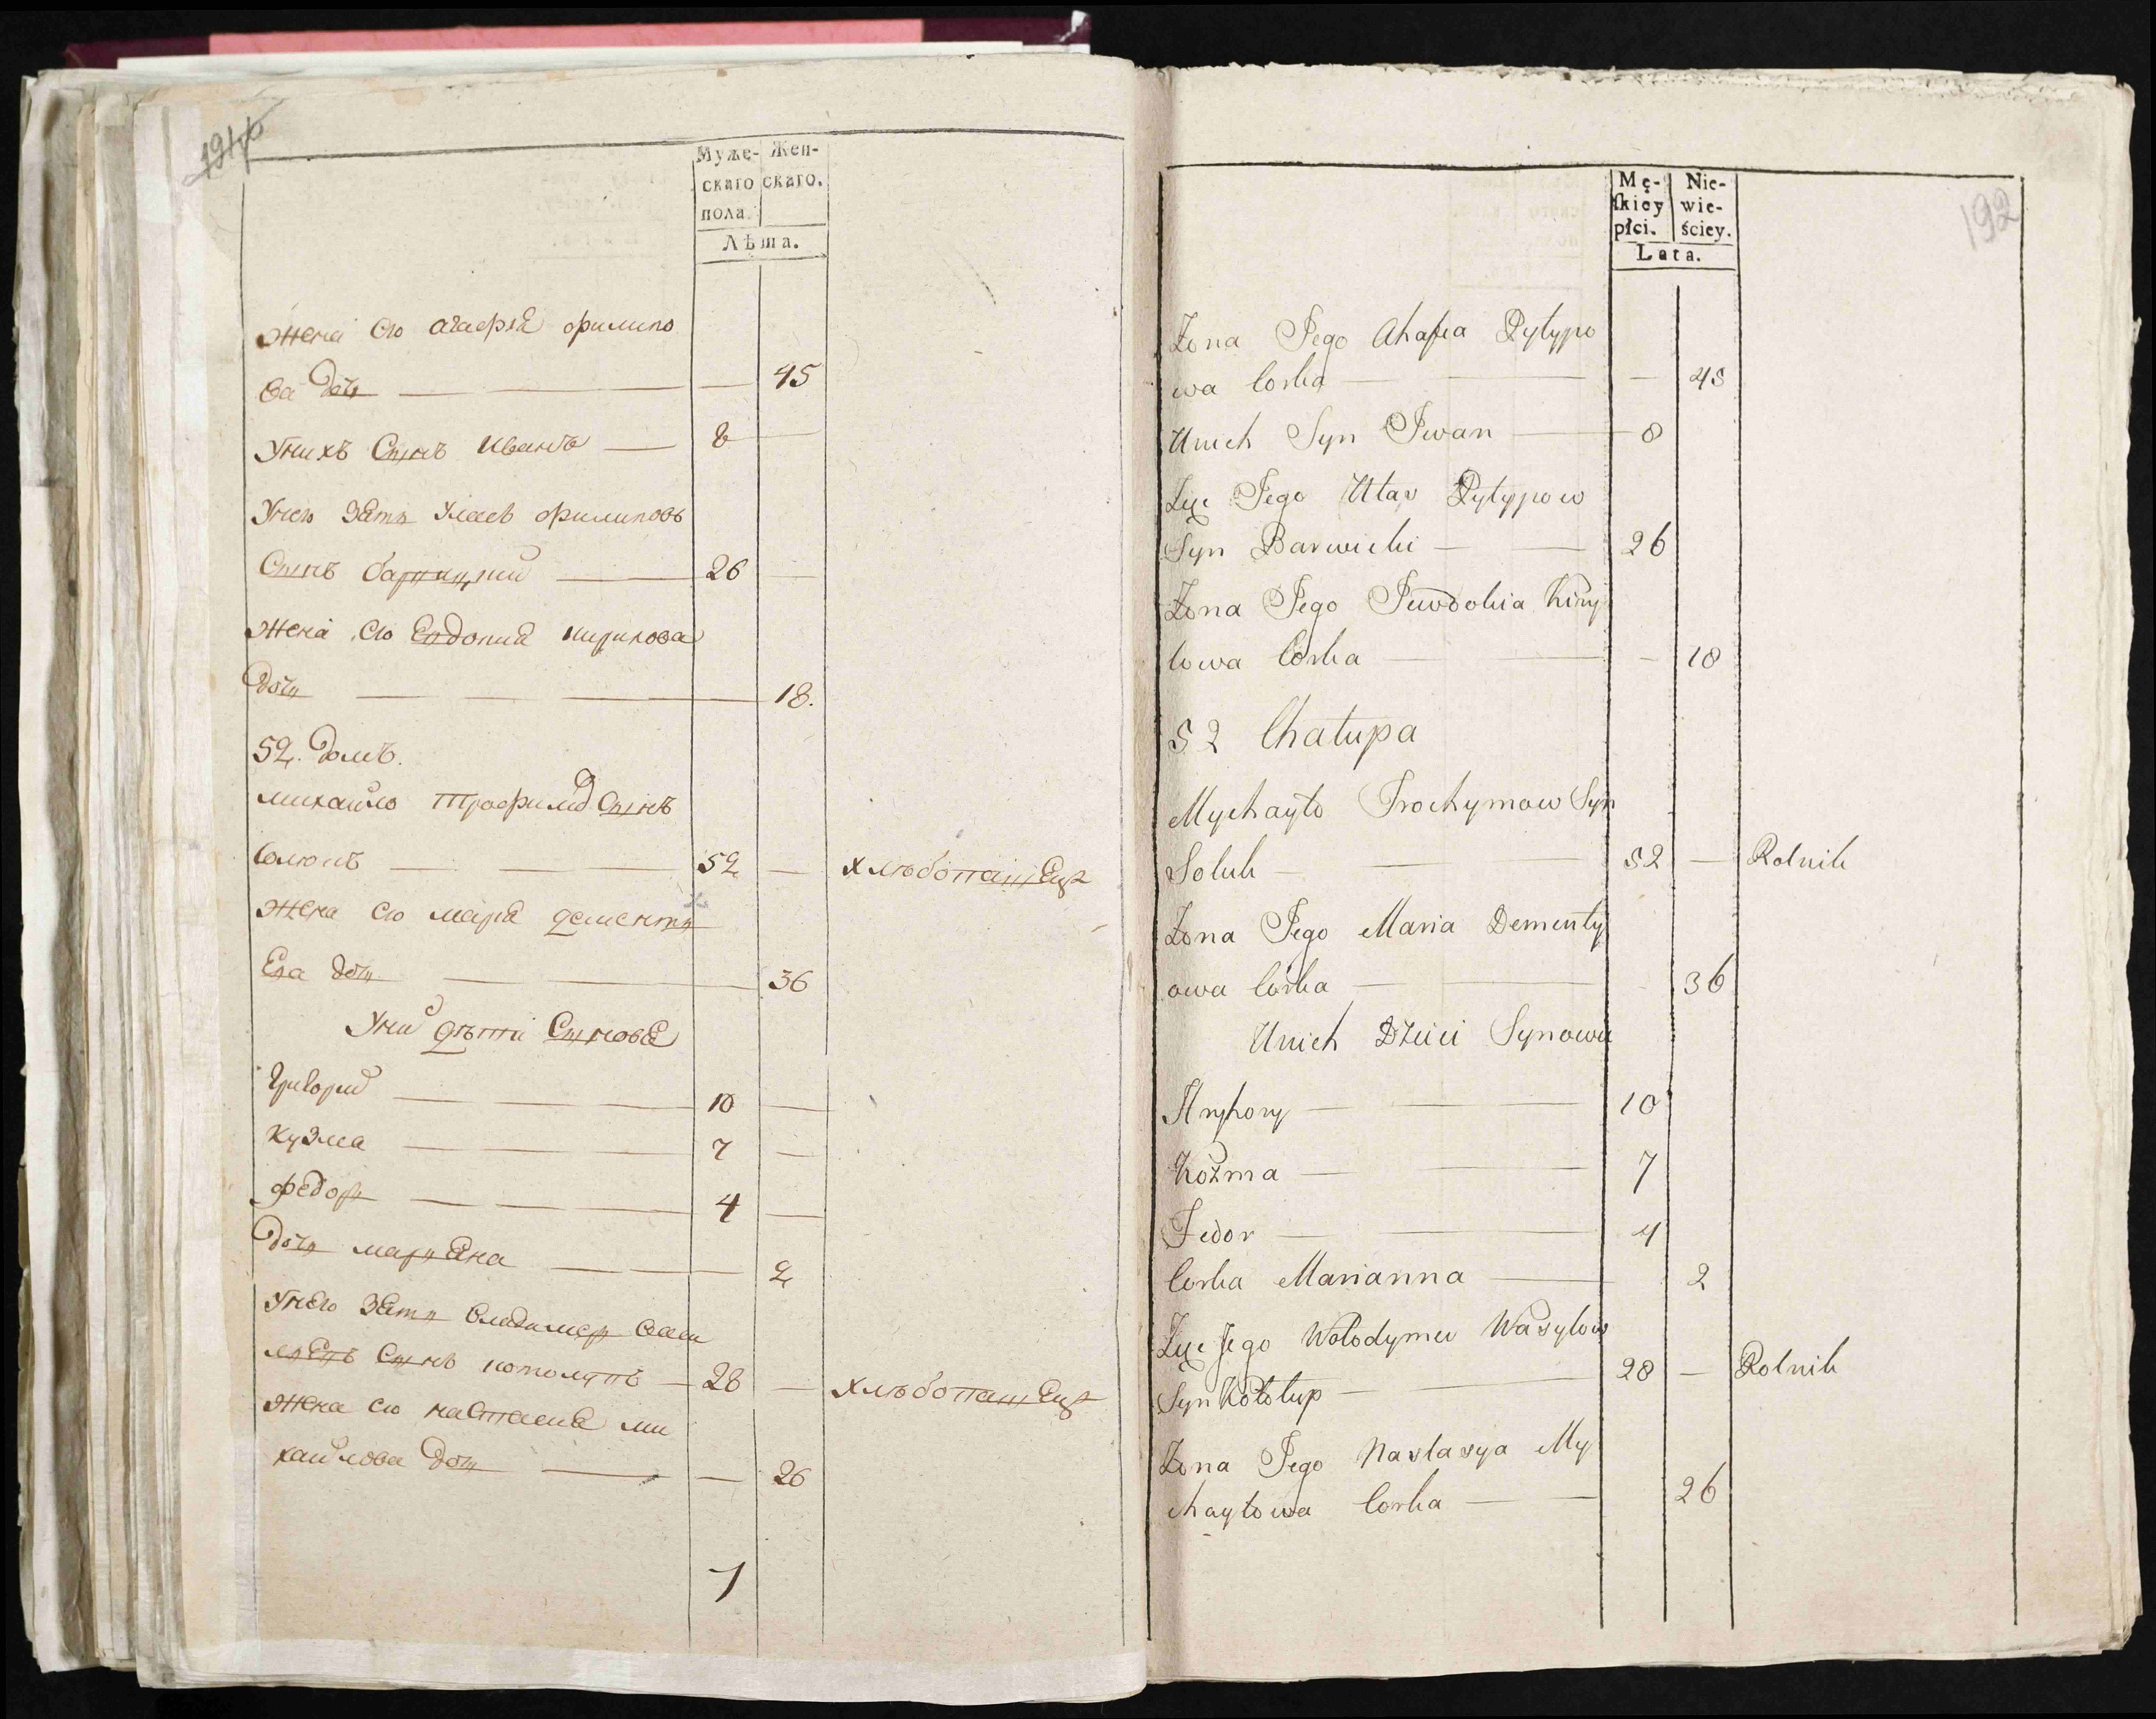 Муже- Жен-
скаго скаго.
пола.
Лѣта.
жена его агафия филипо
ва дочь — — — 45
У них Сынъ иванъ — 8 —
У него зять Улас филиповъ
Сынъ — 26 —
жена его Евдокия кирилова
дочь — — — 18.
52. домъ.
михайло трофимов Сынъ
— — 52 — хлѣбопашецъ
жена его мария дементи
Ева дочь — — 36
У них дѣти Сыновя
григорий — — 10 —
кузма — — 7 —
федоръ — — — 4 —
дочь марияна — — 2
У него зять владимеръ васи
лиевъ Сынъ котолупъ — 28 — хлѣбопашецъ
жена его настасия ми
хайлова дочь — — 26
1
192
Mę- Nie-
skiey wie-
płci. ściey.
Lata.
Żona Jego Ahafia Pylypo
wa Corka — — — 45
Unich Syn Iwan — 8
Zięć Jego Ulas Pylypow
Syn Barwicki — — 26
Żona Jego Jewdokia Kiry
lowa Corka — — — 18
52 Chałupa
Mychayło Trochymow Syn
Soluk — — 52 — Rolnik
Żona Jego Maria Dementy
owa Corka — — 36
Unich Dzieci Synowie
Hryhory — — 10
Kozma — — 7
Fedor — — 4
Corka Marianna — 2
Zięć Jego Wołodymer Wasylow
Syn Kołotup — — 28 — Rolnik
Żona Jego Nastasya My
chayłowa Corka — — 26